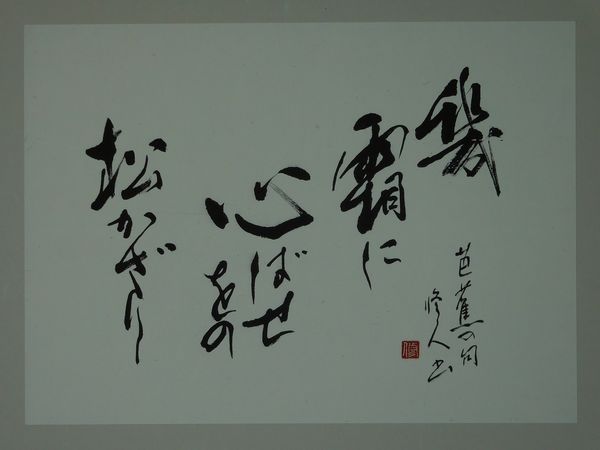 幾
霜に
心ばせ
をの
松かざり
芭蕉の句
修人書